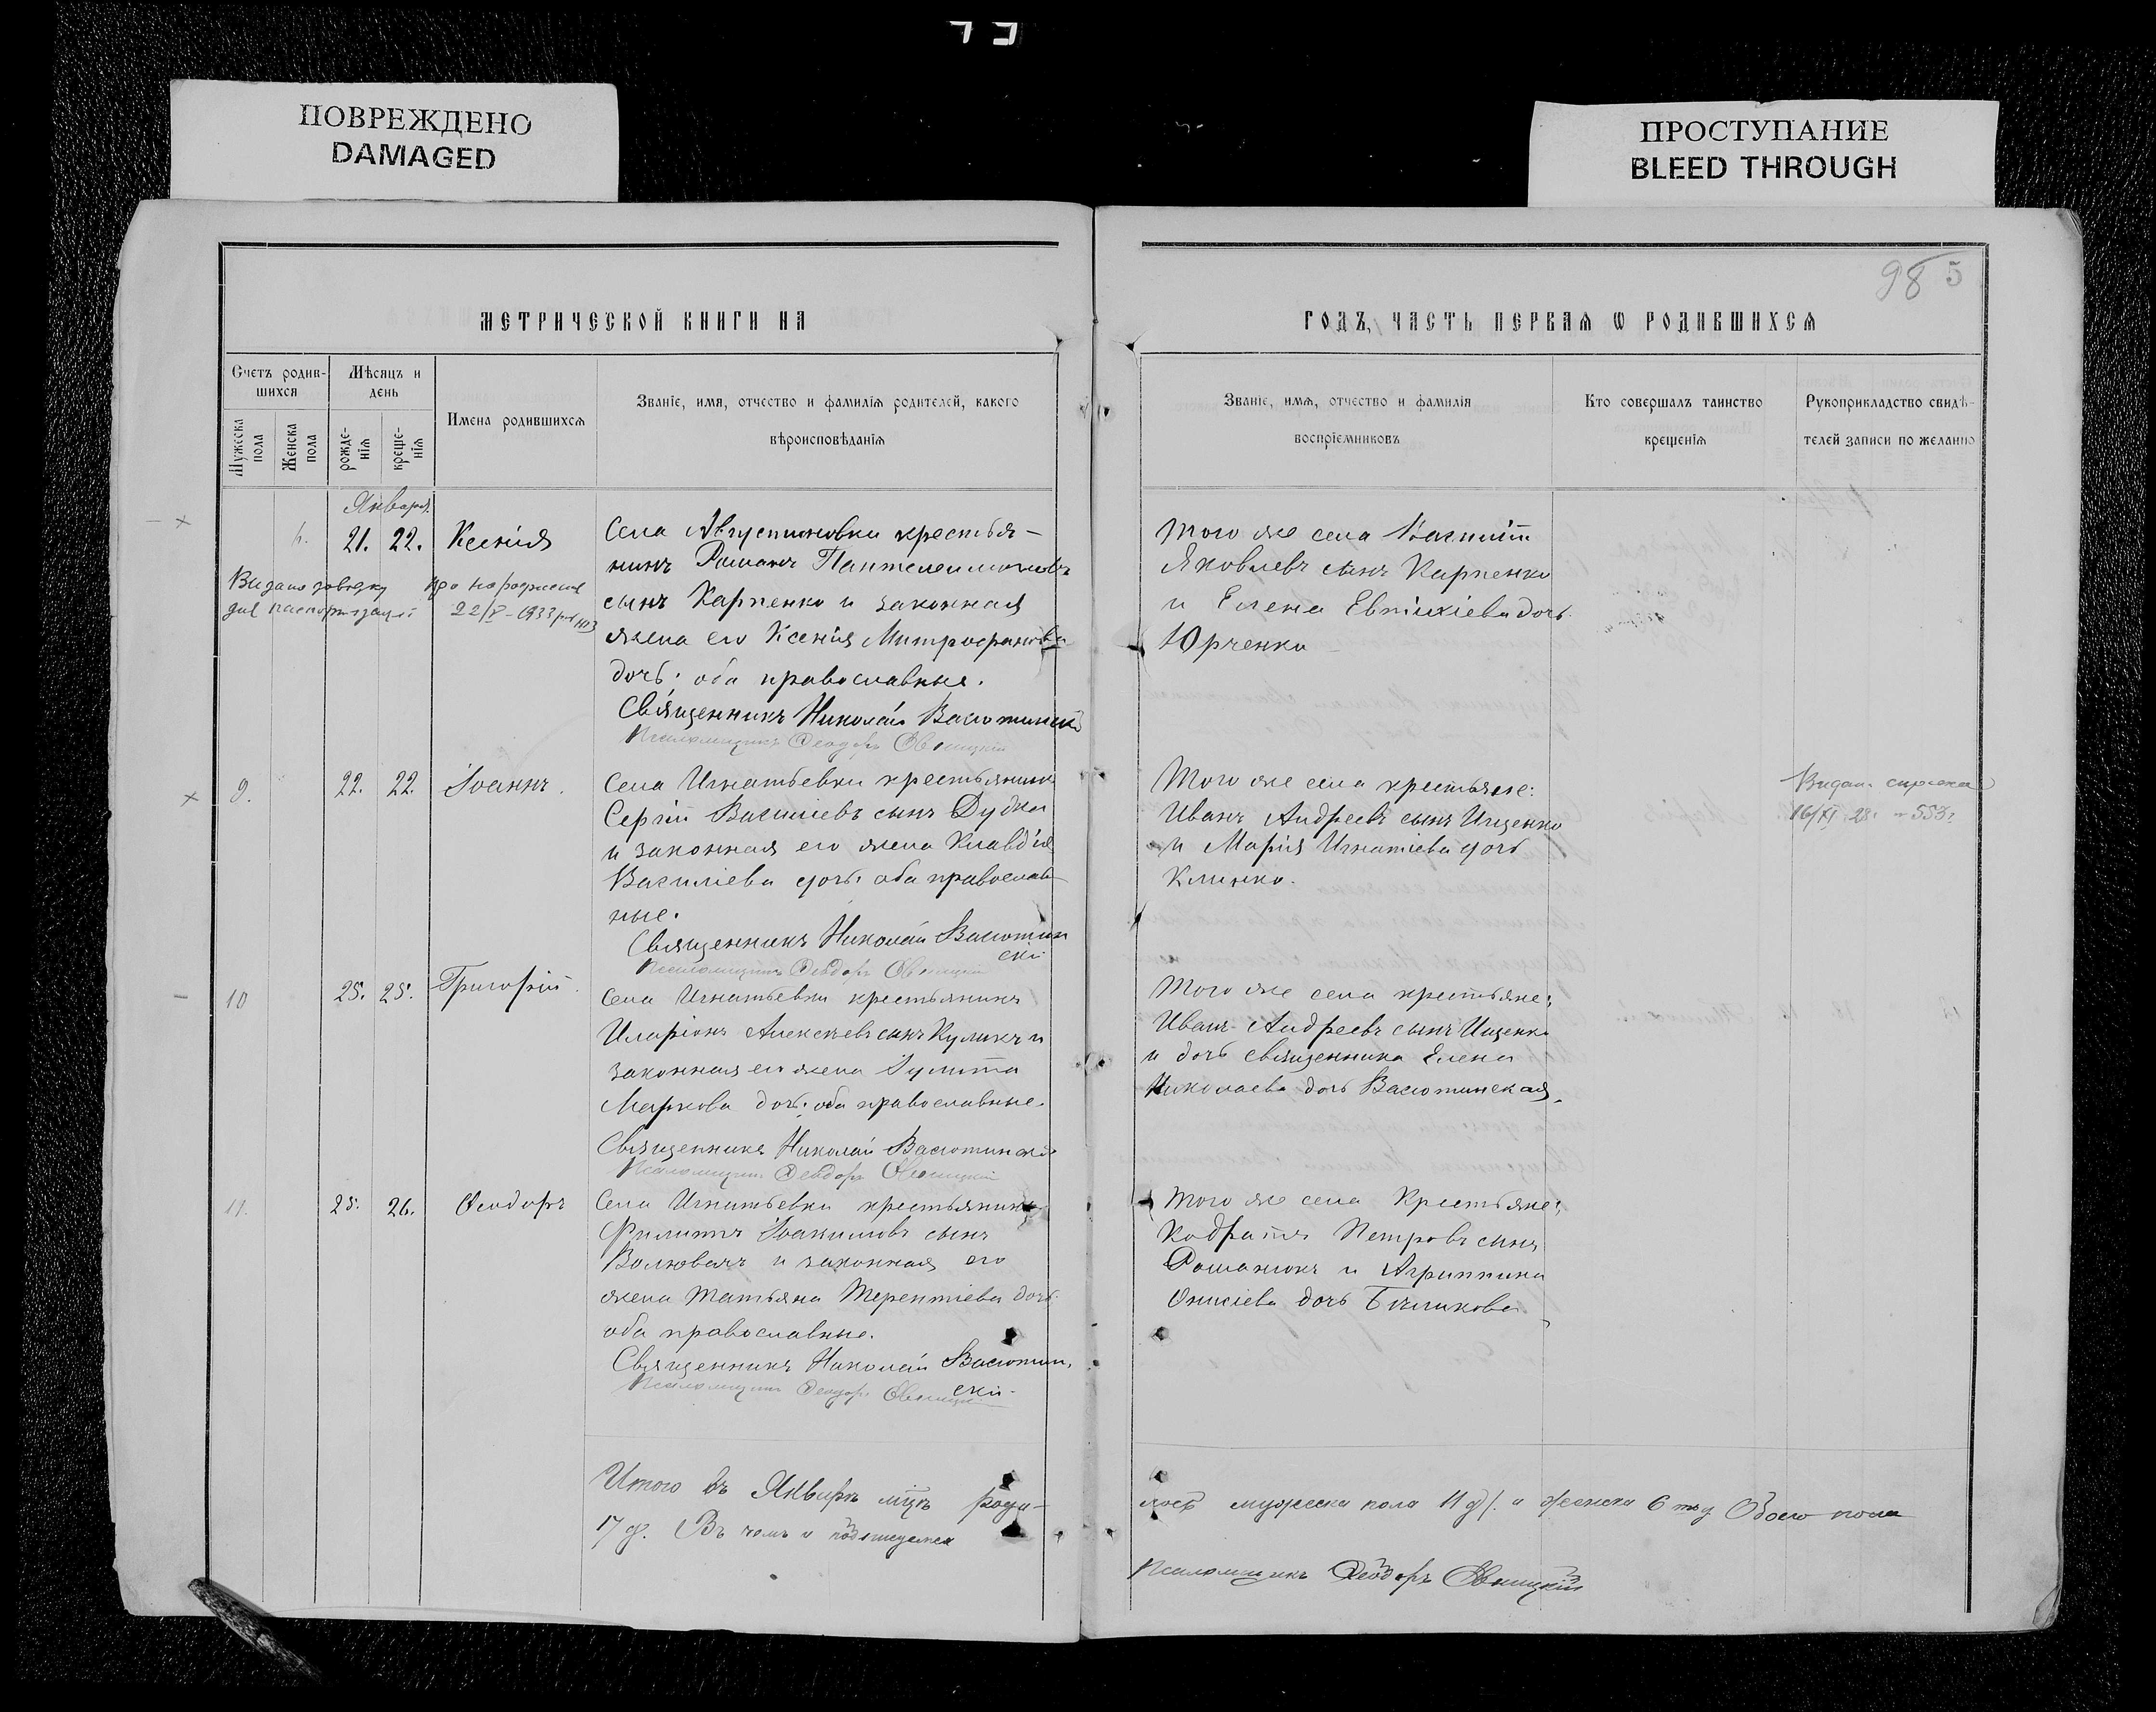 ПОВРЕЖДЕНО
DAMAGED
ПРОСТУПАНИЕ
BLEED THROUGH
98 5
МЕТРИЧЕСКОЙ КНИГИ НА
ГОДЪ, ЧАСТЬ ПЕРВАЯ Ѡ РОДИВШИХСЯ
Счетъ родив-
шихся
Мѣсяцъ и
день
Мужеска
пола
Женска
пола
рожде-
нія
креще-
нія
Имена родившихся
Званіе, имя, отчество и фамилія родителей, какого
вѣроисповѣданія
Званіе, имя, отчество и фамилія
воспріемниковъ
Кто совершалъ таинство
крещенія
Рукоприкладство свидѣ-
телей записи по желанію
Января
6. 21. 22. Ксенія
Видано довідку про народження
для паспортизації 22/V - 1933 р.
Села Августиновки крестья-
нинъ Романъ Пантелеимоновъ
сынъ Карпенко и законная
жена его Ксенія Митрофанова
дочь; оба православные.
Священникъ Николай Васютинскій
Псаломщикъ Ѳеодоръ
Того же села
Яковлевъ сынъ Карпенко
и Елена Евтихіева дочь
Юрченко
9. 22. 22. Іоаннъ.
Села Игнатьевки крестьянинъ
Сергій Василіевъ сынъ Дудка
и законная его жена Клавдія
Василіева дочь; оба православ-
ные.
Священникъ Николай Васютин
скій
Псаломщикъ Ѳеодоръ
Того же села крестьяне:
Иванъ Андреевъ сынъ Ищенко
и Марія Игнатіева дочь
Клинко.
Видан. справка
16/XI 28. № 553.
10 25. 25. Григорій
Села Игнатьевки крестьянинъ
Иларіонъ Алексѣевъ сынъ Куликъ и
законная его жена Іулитта
Маркова дочь; оба православные.
Священникъ Николай Васютинскій
Псаломщикъ Ѳеодоръ
Того же села крестьяне:
Иванъ Андреевъ сынъ Ищенко
и дочь священника Елена
Николаева дочь Васютинская.
11. 25. 26. Ѳеодоръ
Села Игнатьевки крестьянинъ
Филиппъ Іоакимовъ сынъ
и законная его
жена Татьяна Терентіева дочь
оба православные.
Священникъ Николай Васютин.
скій.
Псаломщикъ Ѳеодоръ
Того же села Крестьяне:
Кодратъ Петровъ сынъ
Романюкъ и Агриппина
Онисіева дочь
Итого въ Январѣ мцѣ роди-
лось мужеска пола 11 д. и женска 6 Обоего пола
17 д. Въ чемъ и подписуемся
Псаломщикъ Ѳеодоръ